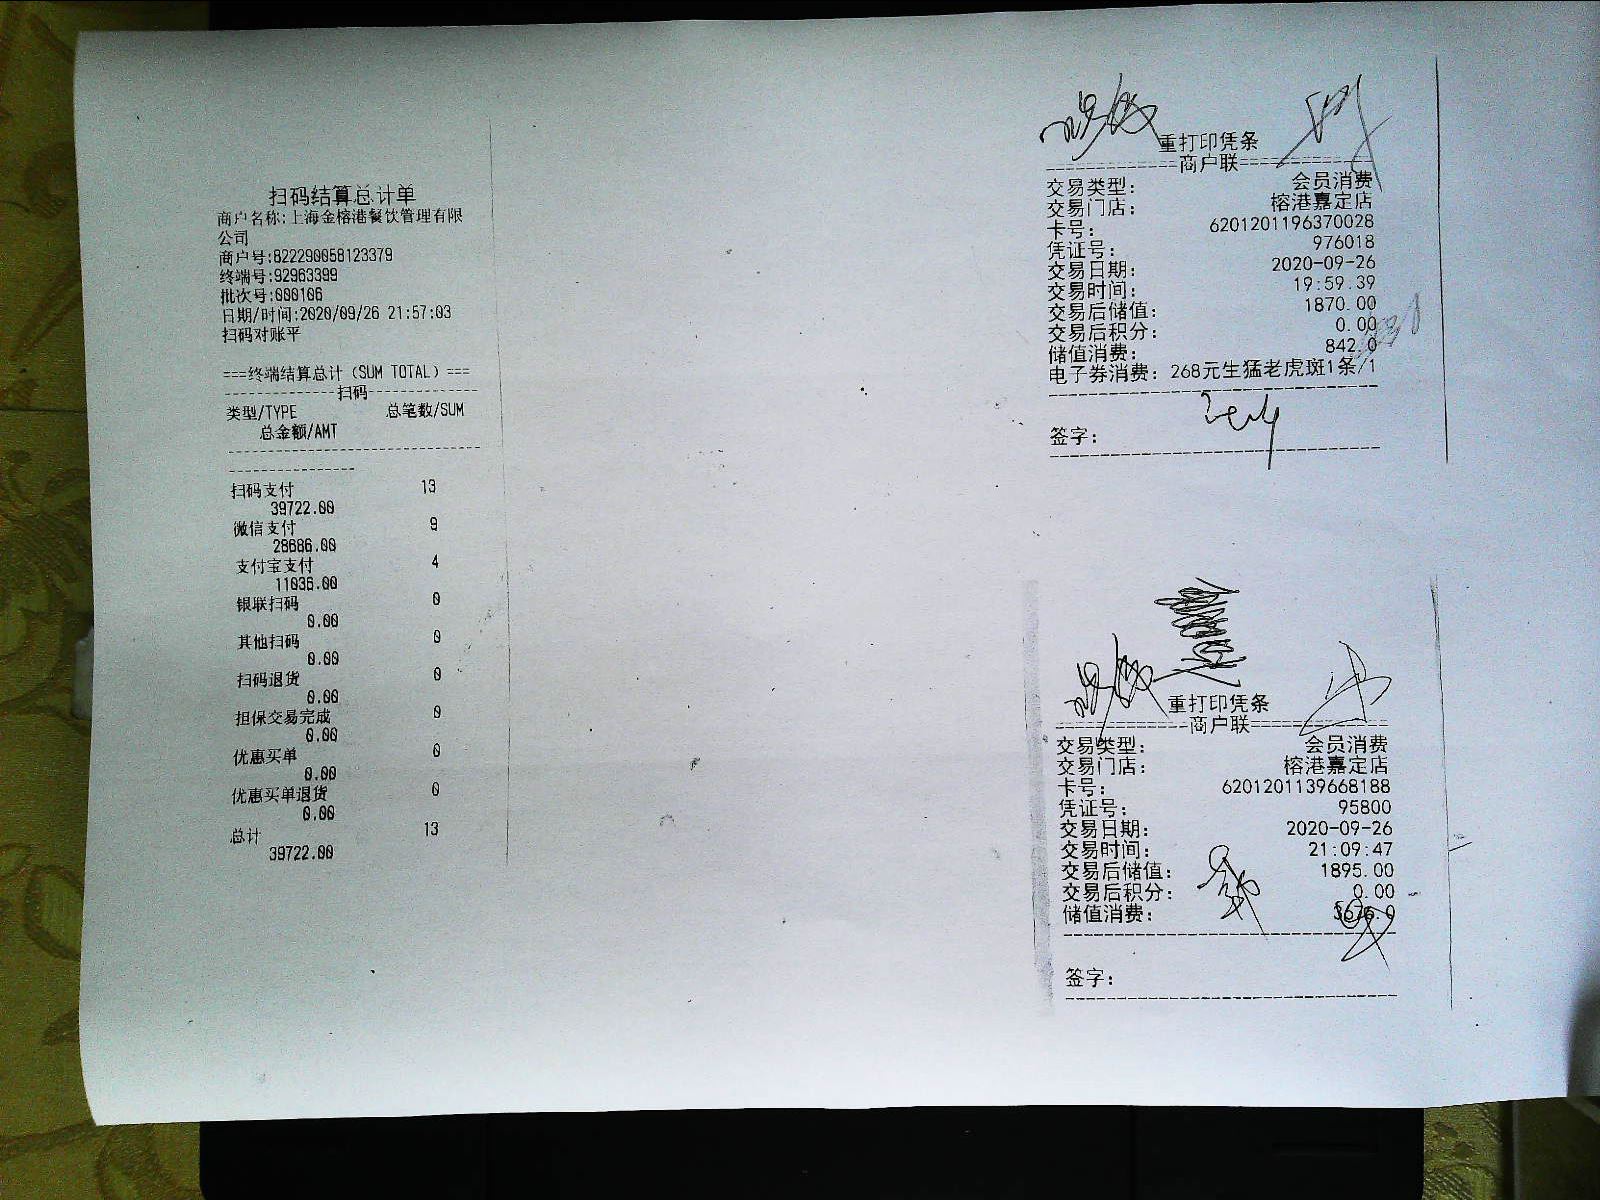 扫码结算总计单
商户名称:上海金榕港餐饮管理有限
公司
商户号:822290058123379
终端号:92963399
批次号:000106
日期/时间:2020/09/26 21:57:03
扫码对账平
===终端结算总计(SUM TOTAL)===
--------------扫码--------------
类型/TYPE 总笔数/SUM
总金额/AMT
扫码支付 13
39722.00
微信支付 9
28686.00
支付宝支付 4
11036.00
银联扫码 0
0.00
其他扫码 0
0.00
扫码退货 0
0.00
担保交易完成 0
0.00
优惠买单 0
0.00
优惠买单退货 0
0.00
总计 13
39722.00
重打印凭条
============商户联============
交易类型: 会员消费
交易门店: 榕港嘉定店
卡号: 6201201196370028
凭证号: 976018
交易日期: 2020-09-26
交易时间: 19:59.39
交易后储值: 1870.00
交易后积分: 0.00
储值消费: 842.0
电子券消费: 268元生猛老虎斑1条/1
签字:
重打印凭条
============商户联============
交易类型: 会员消费
交易门店: 榕港嘉定店
卡号: 6201201139668188
凭证号: 95800
交易日期: 2020-09-26
交易时间: 21:09:47
交易后储值: 1895.00
交易后积分: 0.00
储值消费:
签字: